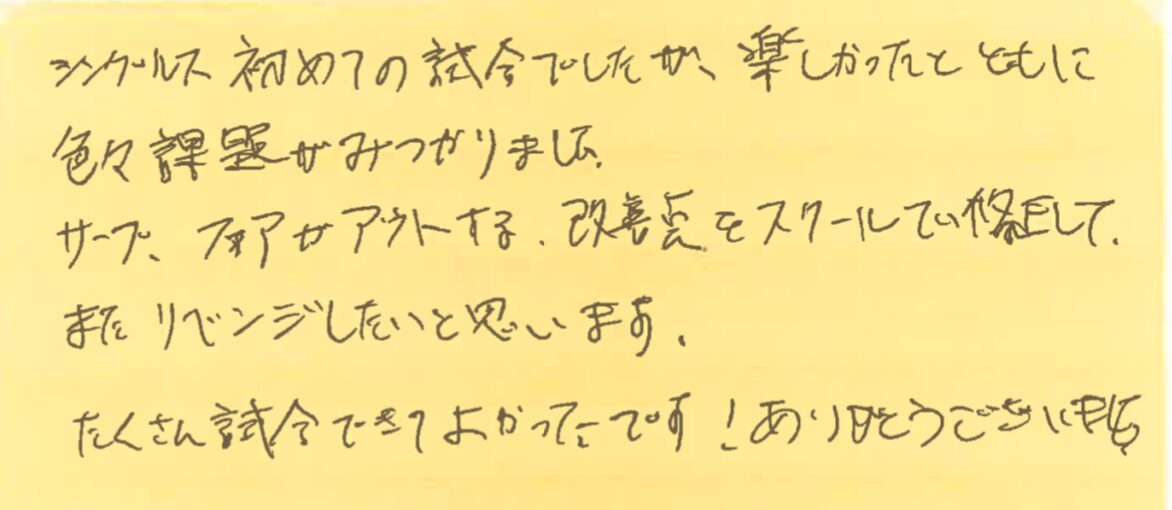 シングルス 初めての試合でしたが、楽しかったとともに
色々課題がみつかりました。
サーブ、フォアがアウトする、改善点をスクールで修正して、
またリベンジしたいと思います。
たくさん試合できてよかったです！ありがとうございました